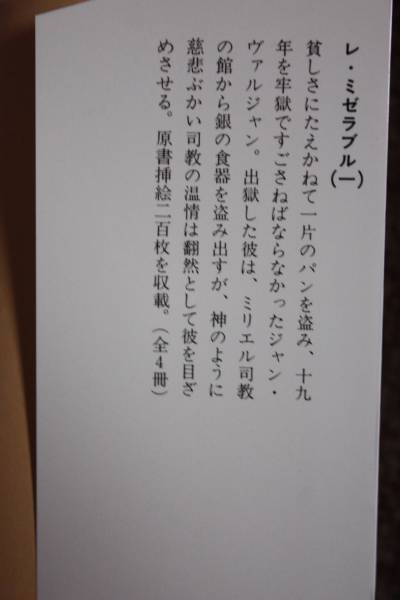 レ・ミゼラブル(一)
貧しさにたえかねて一片のパンを盗み、十九
年を牢獄ですごさねばならなかったジャン・
ヴァルジャン。出獄した彼は、ミリエル司教
の館から銀の食器を盗み出すが、神のように
慈悲ぶかい司教の温情は翻然として彼を目ざ
めさせる。原書挿絵二百枚を収載。(全4冊)